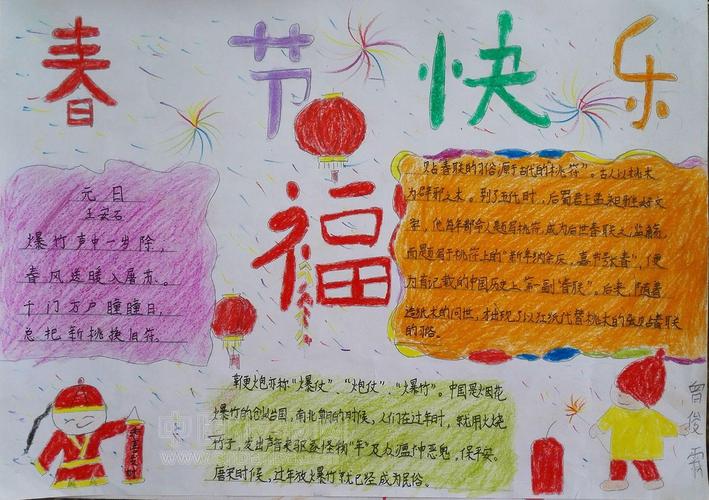 春节快乐
福
元日
王安石
爆竹声中一岁除，
春风送暖入屠苏。
千门万户瞳瞳日，
总把新桃换旧符。
贴春联的习俗源于古代的“桃符”。古人以桃木
为辟邪之木。到了五代时，后蜀君主孟昶
他每年都命人题写桃符，成为后世春联之
而题写于桃符上的“新年纳余庆，嘉节号长春”，便
为有记载的中国历史上第一副“春联”。后来，随着
造纸术的问世，才出现了以红纸代替桃木的张贴春联
的习俗。
鞭炮亦称“爆仗”、“炮仗”、“爆竹”。中国是烟花
爆竹的创始国，南北朝的时候，人们在过年时，就用火烧
竹子，发出声音来驱逐怪物“年”及九瘟神恶鬼，保平安。
唐宋时候，过年放爆竹就已经成为民俗。
曾俊霖